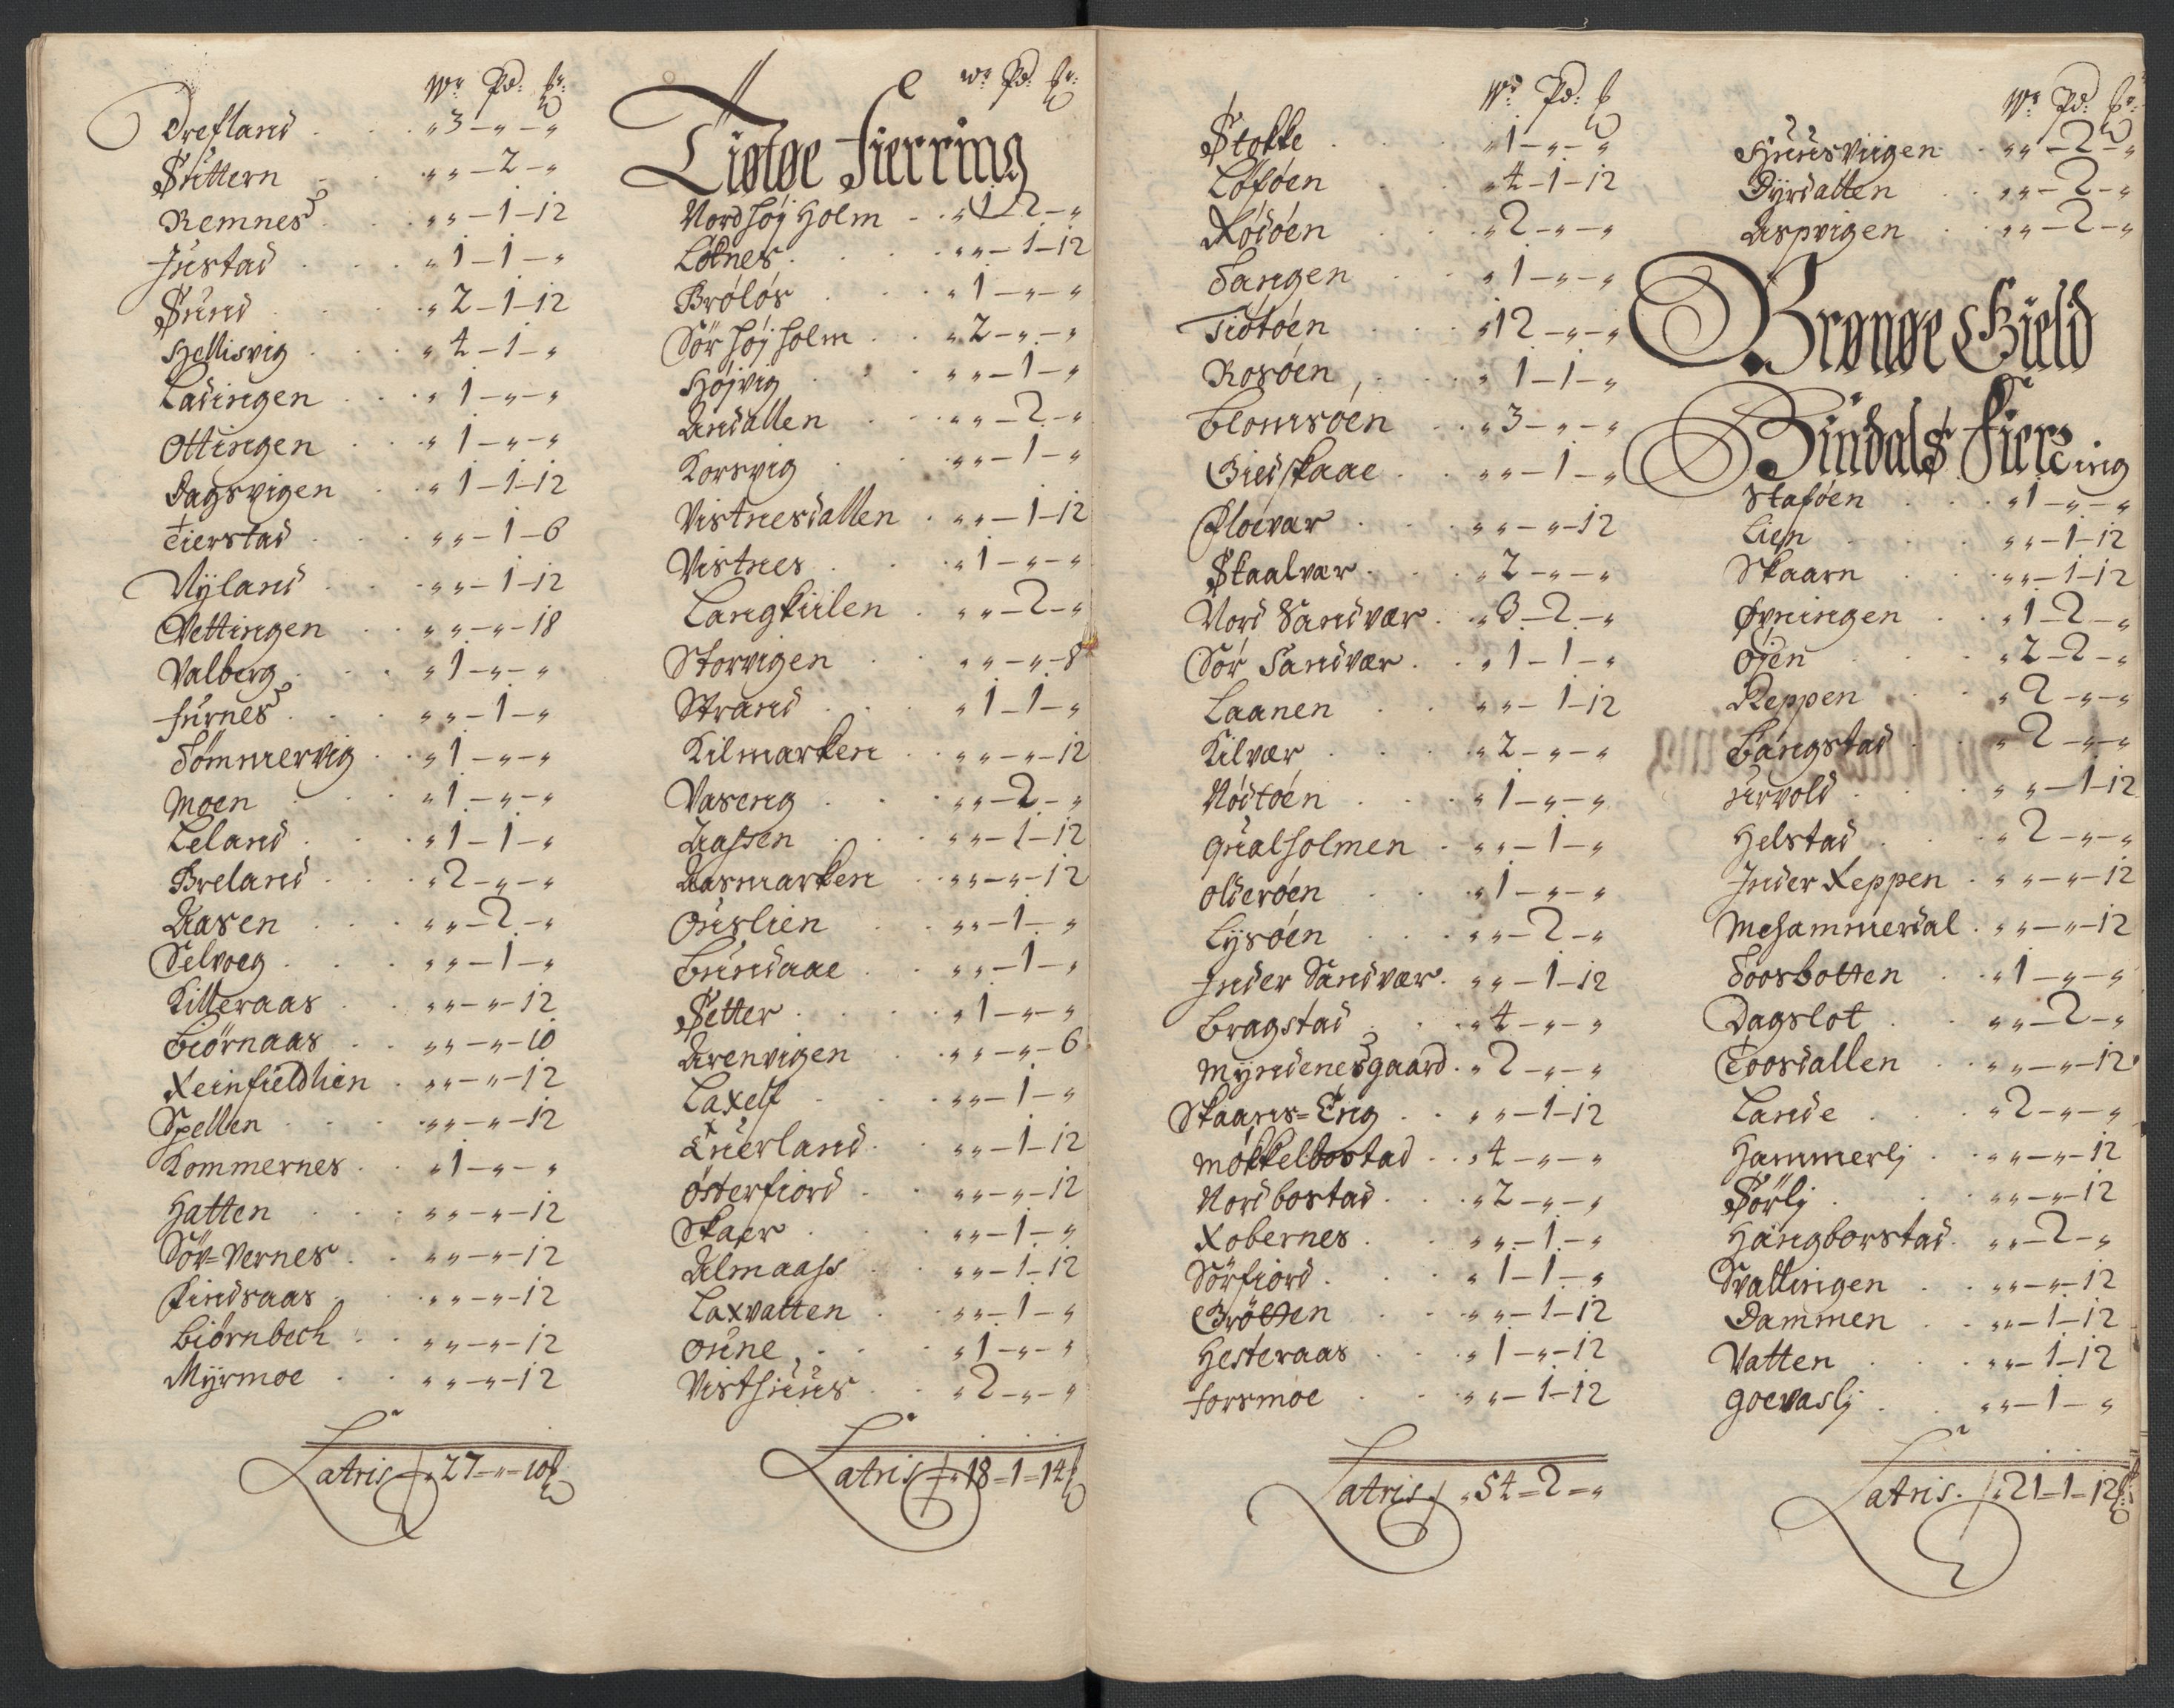 Wr Pd: lb:
Drefland „3-„-„
Suttern „„-2-„
Remnes „„-1-12
Justad „1-1-„
Sund „2-1-12
Hellisvig „4-1-„
Ladingen „1-„-„
Ottingen „1-„-„
Dagsvigen „1-1-12
Tierstad „„-1-6
Nyland „„-1-12
Vettingen „„-„-18
Valberg „1-„-„
furnes „„-1-„
Sømmervig „1-„-„
Moen „1-„-„
Leland „1-1-„
Breland „2-„-„
Aasen „„-2-„
Selvoeg „„-1-„
Killeraas „„-„-12
Biörnaas „„-„-10
Reinfieldlien „„-„-12
Spellen „„-„-12
Kommernes „1-„-„
Hatten „„-„-12
Söv=Vernes „„-„-12
Findsaas „„-„-12
Biörnbech „„-„-12
Myrmoe „„-„-12
Latris „27-„-10 lb
Wr Pd: lb:
Tiøtøe Fierring
Nordhøj Holm „1-2-„
Løknes „„-1-12
Brøløs „1-„-„
Sör höj holm „2-„-„
Højvig „„-1-„
Andallen „„-2-„
Korsvig „„-1-„
Vistnesdallen „„-1-12
Vistnes „1-„-„
Langkiilen „„-2-„
Storvigen „„-„-8
Strand „1-1-„
Kilmarken „„-„-12
Vaseng „„-2-„
Aassen „„-1-12
Aasmarken „„-„-12
Ouslien „„-1-„
Bundaae „„-1-„
Setter „1-„-„
Arenvigen „„-„-6
Laxelf „„-1-„
Luerland „„-1-12
Østerfiord „„-„-12
Skaer „„-1-„
Almaass „„-1-12
Laxvatten „„-1-„
Oune „1-„-„
Visthuus „2-„-„
Latris „18-1-14 lb
Wr: Pd: lb
Stokke „1-„-„
Løføen „4-1-12
Rødøen „2-„-„
Tangen „1-„-„
Tiøtøen „12-„-„
Rosøen „1-1-„
Blomsøen „3-„-„
Giedskaae „„-1-„
Floevær „„-„-12
Skaalvær „2-„-„
Nord Sandvær „3-2-„
Sør Sandvær „1-1-„
Laanen „„-1-12
Kilvær „2-„-„
Nødtøen „1-„-„
Qualholmen „„-1-„
Olderøen „1-„-„
Lysøen „„-2-„
Inder Sandvær „„-1-12
Bragstad „4-„-„
Myndenesgaard „2-„-„
Skaans=Eng „„-1-12
Møkkelbostad „4-„-„
Nordbostad „2-„-„
Robernes „„-1-„
Sörfiord „1-1-„
Grötten „„-1-12
Hesteraas „1-„-12
forsmoe „„-1-12
Latris „54-2-„
Wr Pd: lb:
Huusviigen „„-2-„
Dyrdallen „„-2-„
Aspvigen „„-2-„
Brønøe Gield
Bindals Fierring
Staføen „1-„-„
Lien „„-1-12
Skaarn „„-1-12
Øvningen „1-2-„
Øjen „2-2-„
Reppen „2-„-„
Bangstad „2-„-„
Urvold „„-1-12
Helstad „2-„-„
Inder Reppen „„-„-12
Mehammerdal „„-„-12
Toosbotten „1-„-„
Dagslot „„-2-„
Toosdallen „„-„-12
Lande „2-„-„
Hammerlj „„-„-12
Sörlj „„-„-12
Hangborstad „„-2-„
Svallingen „„-„-12
Dammen „„-1-12
Vatten „„-1-12
Goevaslj „„-1-„
Latris „21-1-12 lb